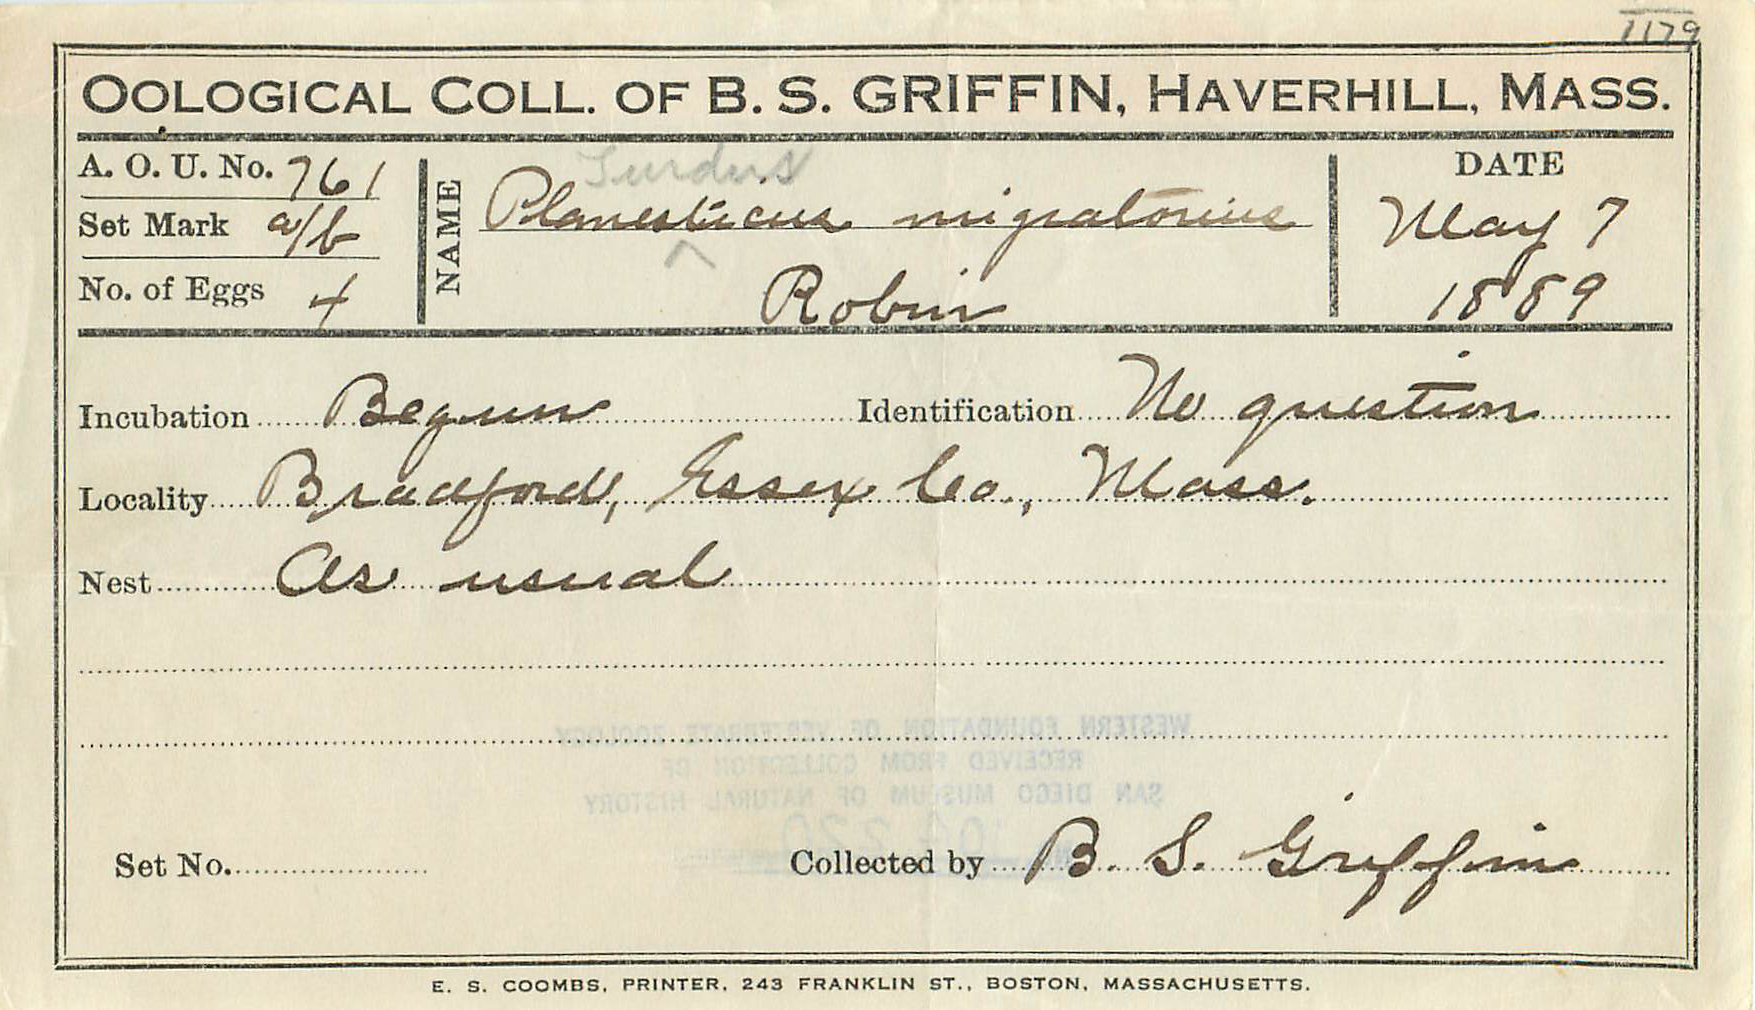 1179
OOLOGICAL COLL. OF B. S. GRIFFIN, HAVERHILL, MASS.
A. O. U. No. 761
Set Mark a/b
No. of Eggs 4
NAME
Turdus
Planesticus migratorius
^
Robin
DATE
May 7
1889
Incubation Begun Identification No question
Locality Bradford, Essex Co., Mass.
Nest As usual
WESTERN FOUNDATION OF VERTEBRATE ZOOLOGY
RECEIVED FROM COLLECTION OF
SAN DIEGO MUSEUM OF NATURAL HISTORY
Set No. Collected by B. S. Griffin
E. S. COOMBS, PRINTER, 243 FRANKLIN ST., BOSTON, MASSACHUSETTS.